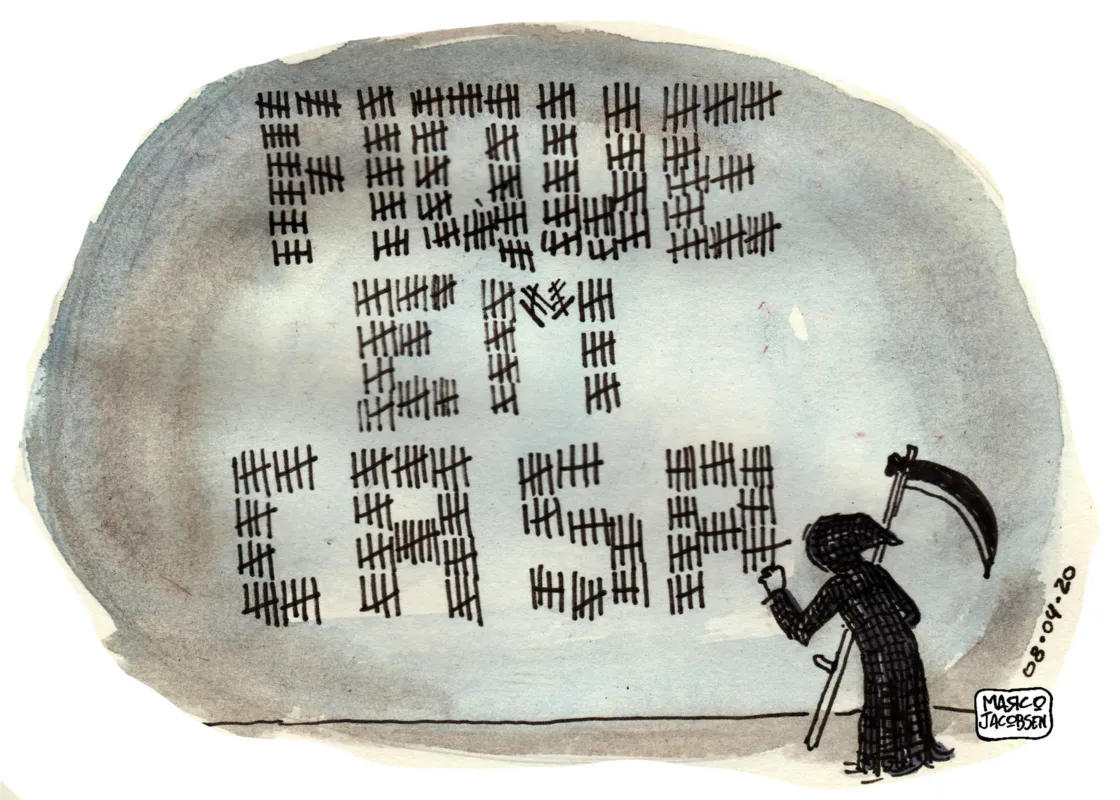 FIQUE
EM
CASA
08.04.20
MARCO
JACOBSEN